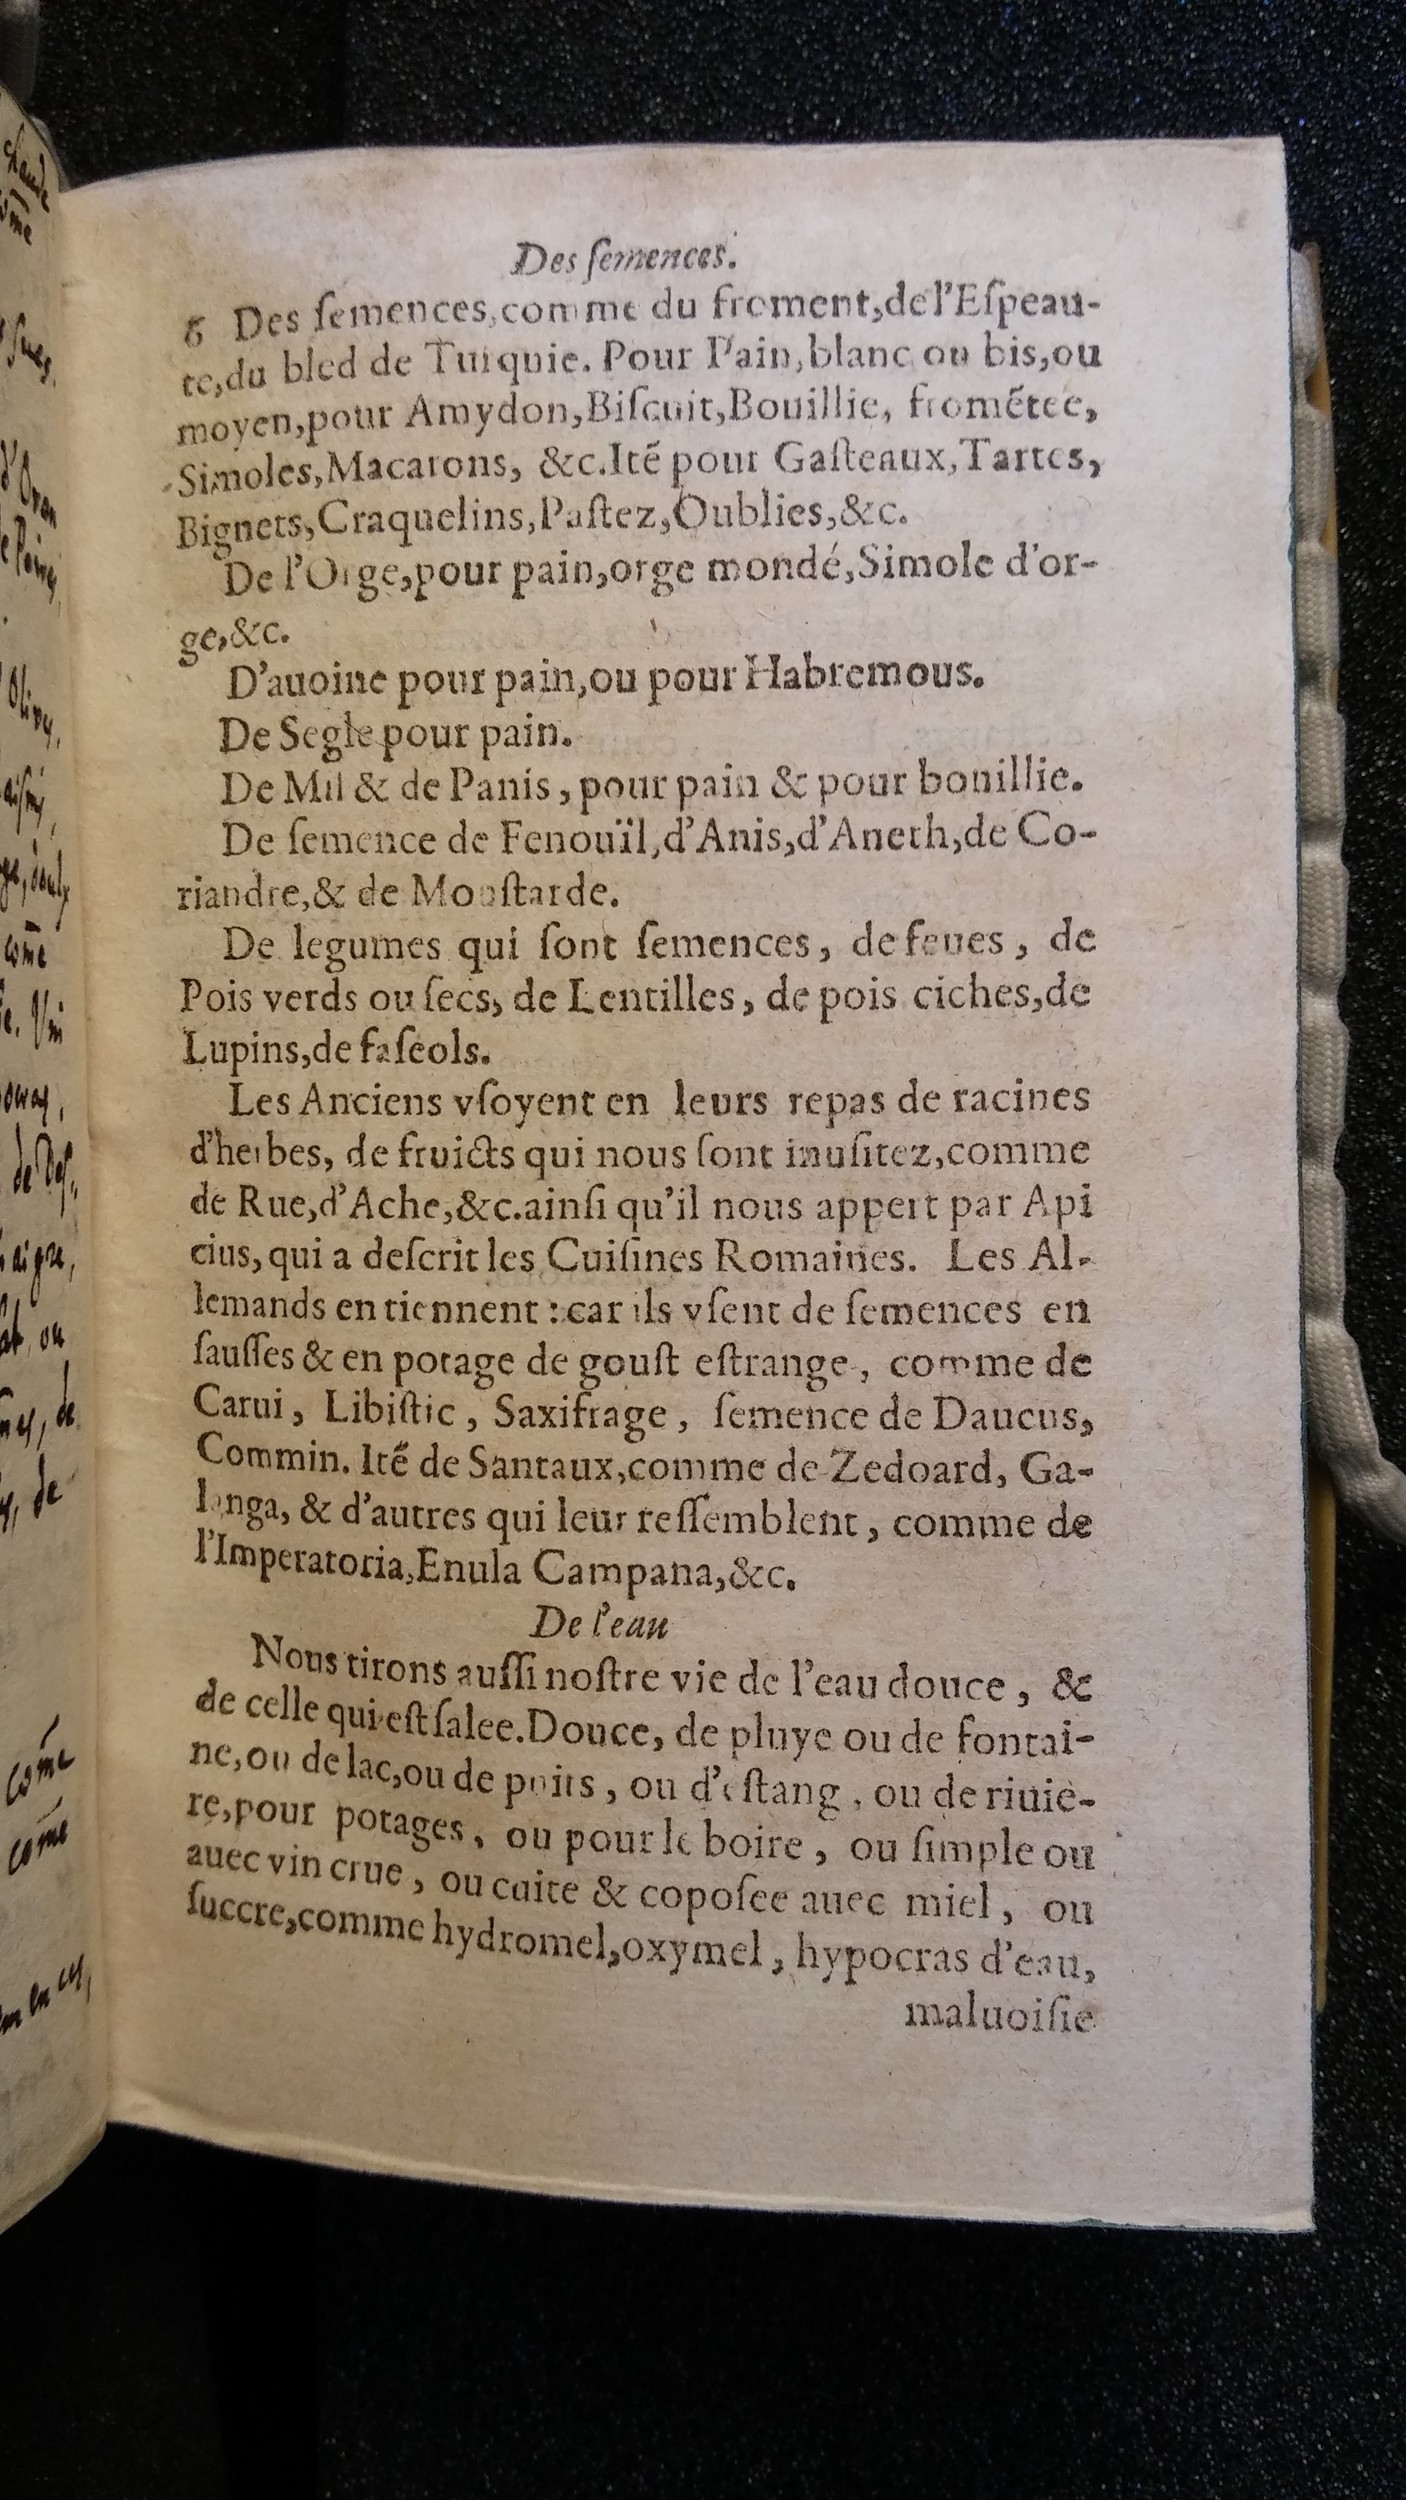 Des ſemences.
6 Des ſemences, comme du froment, de l'Eſpeau-
te, du bled de Turquie. Pour Pain, blanc ou bis, ou
moyen, pour Amydon, Biſcuit, Bouillie, fromẽtee,
Simoles, Macarons, &c. Itẽ pour Gaſteaux, Tartes,
Bignets, Craquelins, Paſtez, Oublies, &c.
De l'Orge, pour pain, orge mondé, Simole d'or-
ge, &c.
D'auoine pour pain, ou pour Habremous.
De Segle pour pain.
De Mil & de Panis, pour pain & pour bouillie.
De ſemence de Fenouïl, d'Anis, d'Aneth, de Co-
riandre, & de Mouſtarde.
De legumes qui ſont ſemences, de feues, de
Pois verds ou ſecs, de Lentilles, de pois ciches, de
Lupins, de faſeols.
Les Anciens vſoyent en leurs repas de racines
d'herbes, de fruicts qui nous ſont inuſitez, comme
de Rue, d'Ache, &c. ainſi qu'il nous appert par Api
cius, qui a deſcrit les Cuiſines Romaines. Les Al-
lemands en tiennent : car ils vſent de ſemences en
ſauſſes & en potage de gouſt eſtrange, comme de
Carui, Libiſtic, Saxifrage, ſemence de Daucus,
Commin. Itẽ de Santaux, comme de Zedoard, Ga-
langa, & d'autres qui leur reſſemblent, comme de
l'Imperatoria, Enula Campana, &c.
De l'eau
Nous tirons auſſi noſtre vie de l'eau douce, &
de celle qui eſt ſalee. Douce, de pluye ou de fontai-
ne, ou de lac, ou de puits, ou d'eſtang, ou de riuiè-
re, pour potages, ou pour le boire, ou ſimple ou
auec vin crue, ou cuite & copoſee auec miel, ou
ſuccre, comme hydromel, oxymel, hypocras d'eau,
maluoiſie